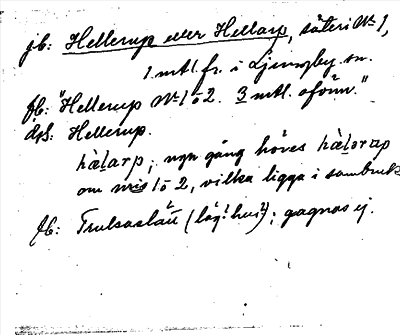 jb: Hellerup eller Hellarp, säteri No 1,
1 mtl. fr. i Ljungby sn.
jb: "Hellerup No 1 o 2. 3 mtl. oförm."
dps: Hellerup.
hàḷarp; ngn gång höres hàḷorap
om nris 1 o 2, vilka ligga i sambruk
jb: (låg! hus?); gagnas ej.